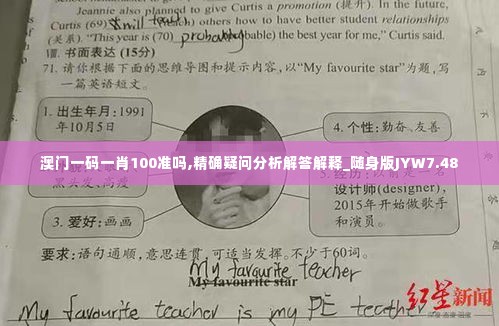 Jeannie also planned to give Curtis a promotion (提升). In the future,
Curtis (69) Still (teach) others how to have better student behaviors
(关系). “This year is (70) probably (probable) the best year for me,” Curtis said.
Ⅷ. 书面表达 (15分)
71. 请你根据下面的思维导图和提示内容，以“My favourite star”为题，写
一篇英语短文。
1. 出生年月：1991
年10月5日
4. 个性：勤奋、友
澳门一码一肖100准吗,精确疑问分析解答解释_随身版JYW7.48
黑头发、高瘦
以前是设计师，
(designer),
2015年开始做歌手
和演员。
3. 爱好：画画
要求：语句通顺，意思连贯，可适当发挥。不少于60词。
My favourite teacher
My favourite star
My favourite teacher is my PE teacher
红星新闻